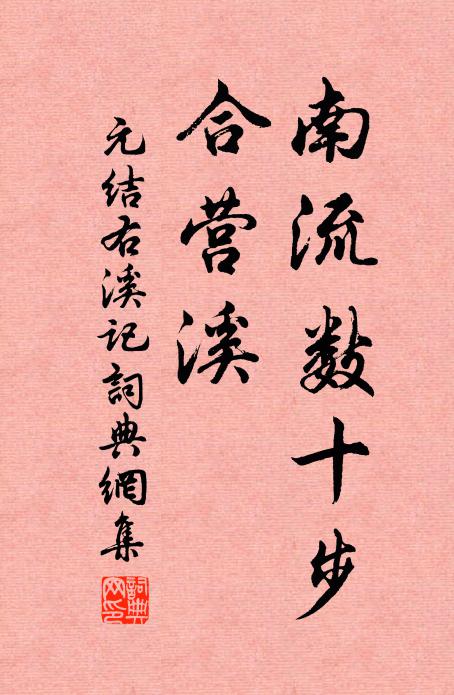 南流数十步
合营溪
元结右溪记詞典網集
詞典网印